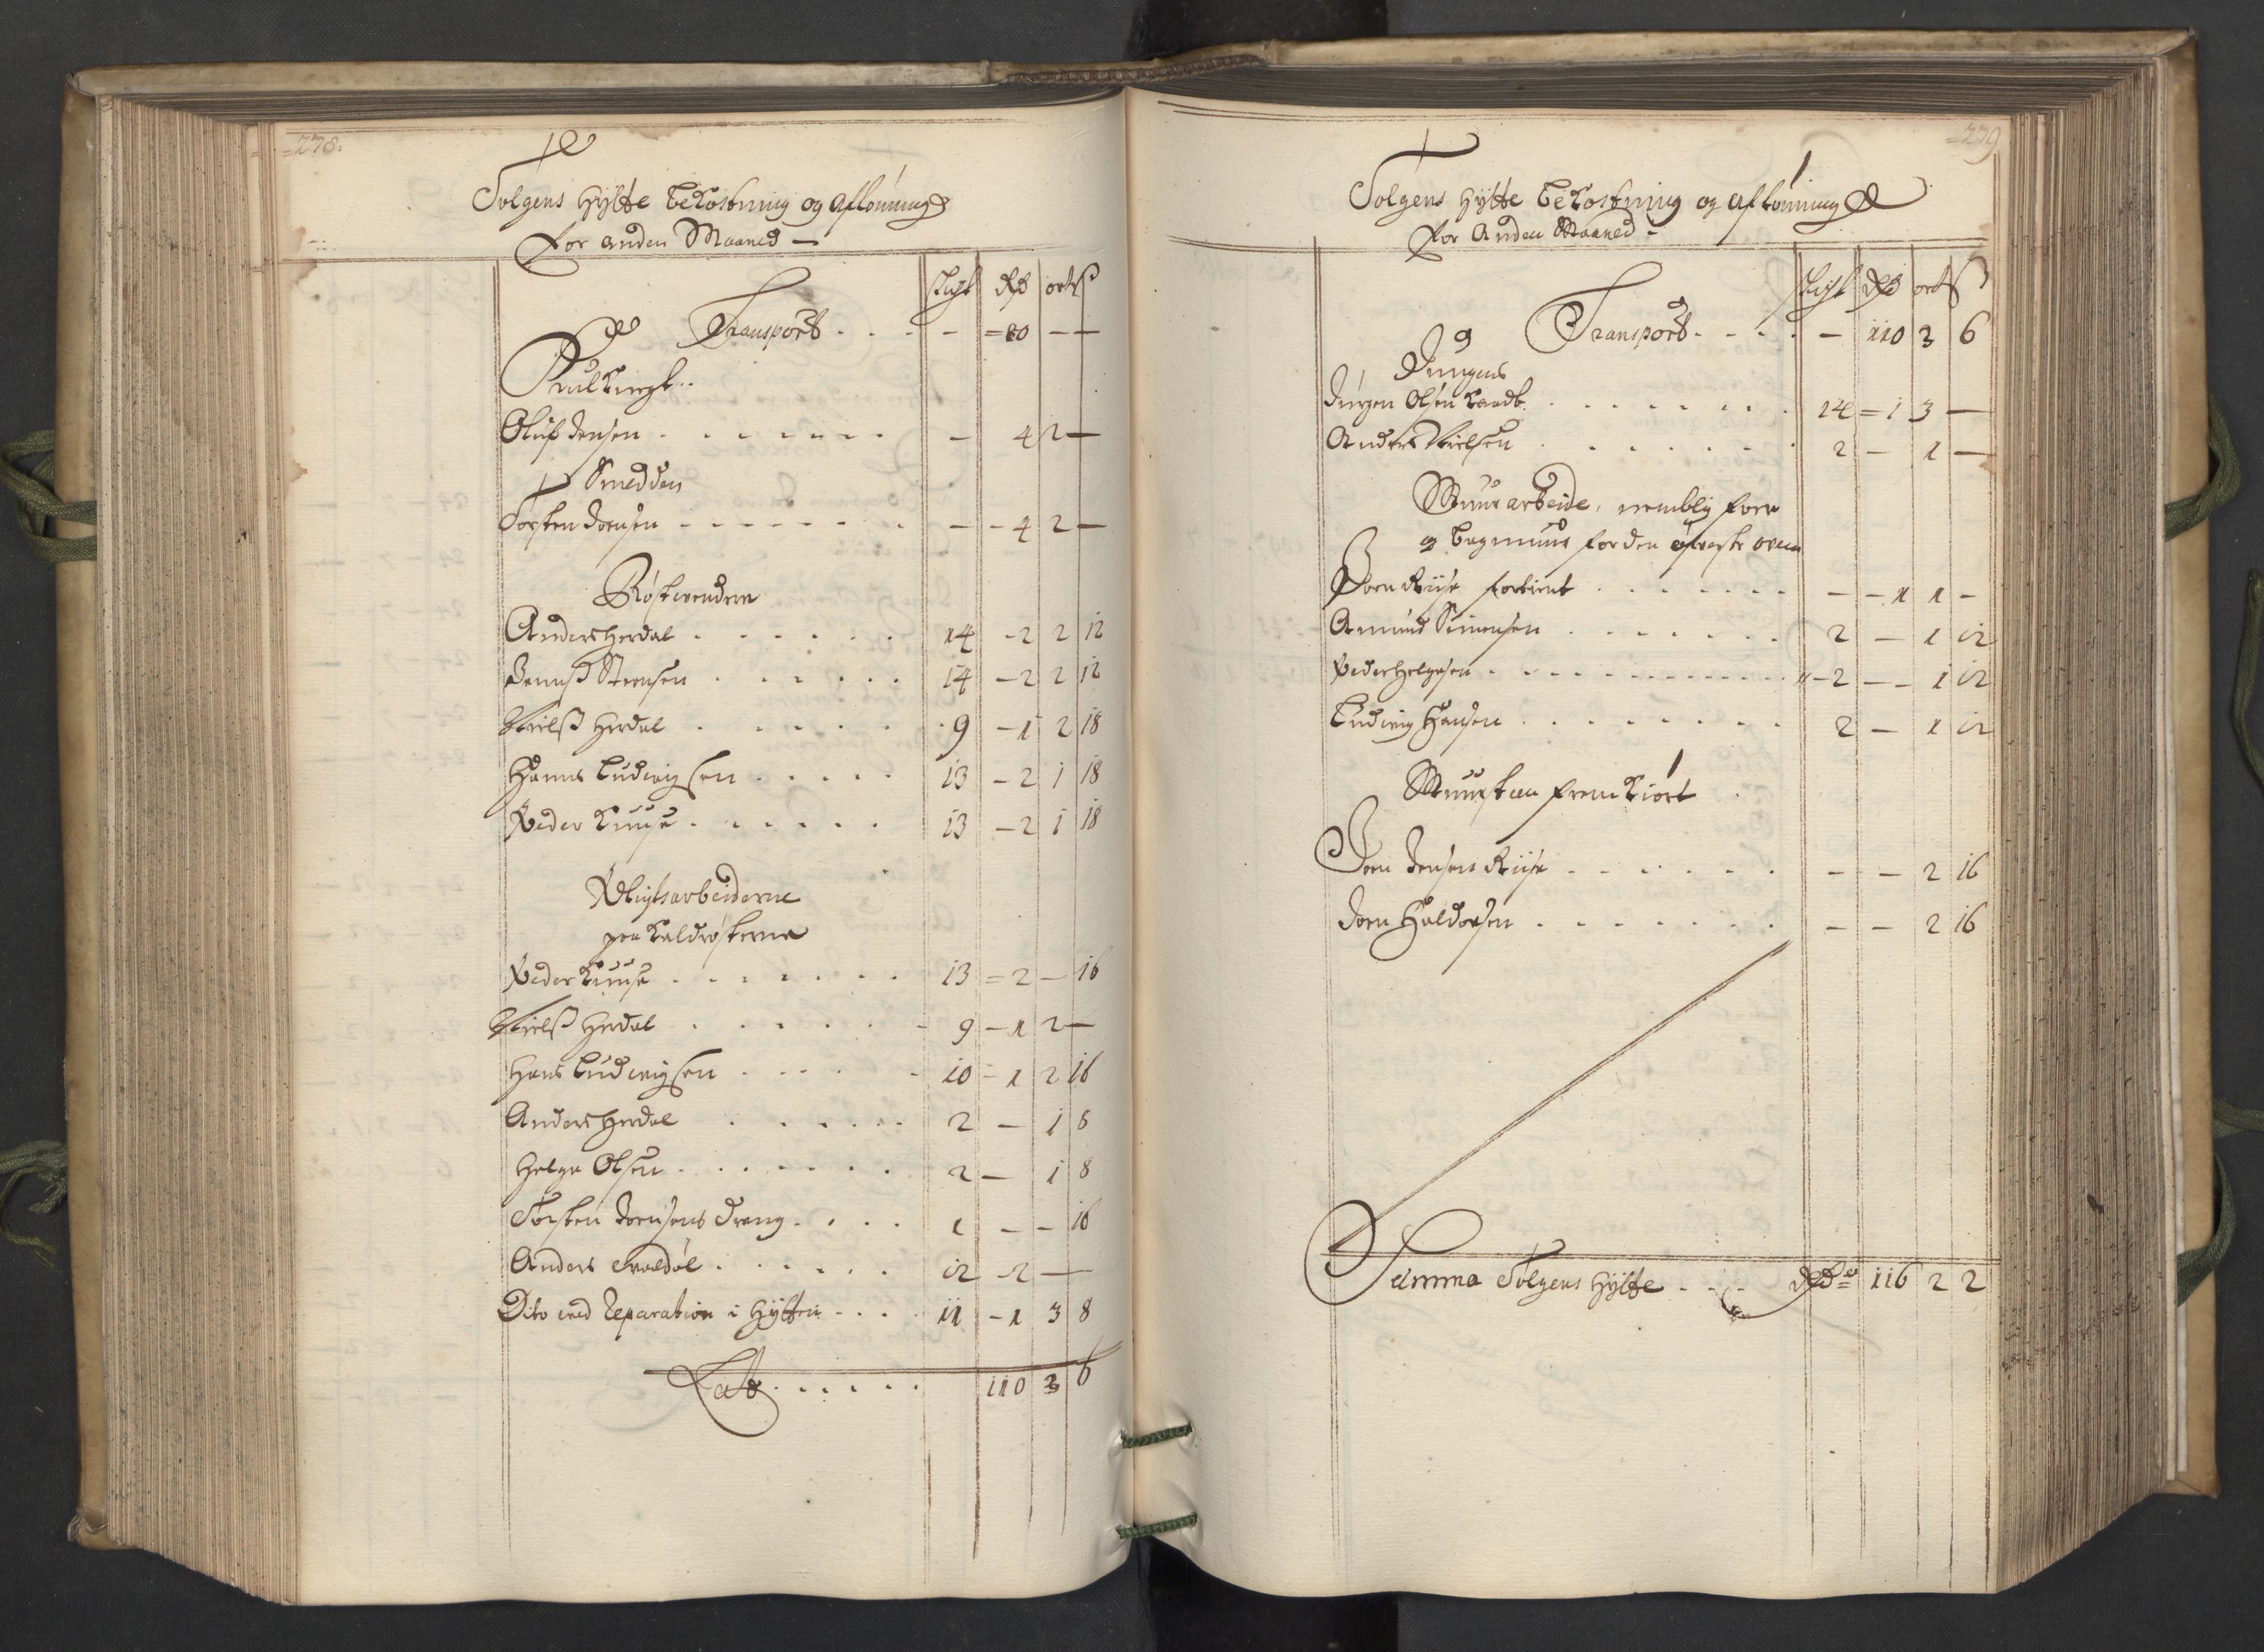 =278.
Tolgens Hytte bekostning og afløning
for anden Maaned —
Skigt Rdr ort ß
Transport . . . — =80 — —
Kulknegt..
Oluf Jensen . . . . . . . — 4 2 —
Smedden
Torsten Joensen - - - - - - — - 4 2 —
Røstvendere
Anders Herdal . . . . . . 14 - 2 2 12
Steensen . . . . . . 14 - 2 2 12
Nielß Herdal . . . . . 9 - 1 2 18
Hanns Ludvigsen . . . . . 13 - 2 1 18
Peder Kuuse . . . . . 13 - 2 1 18
Schigtsarbeiderne
paa kaldrøsterne
Peder Kuuse . . . . . . . 13 = 2 — 16
Nielß Herdal . . . . . 9 - 1 2 —
Hans Ludvigsen . . . . 10 - 1 2 16
Anders Herdal . . . . . . 2 — 1 8
Helge Olsen . . . . . . 2 — 1 8
Torsten Joensens dreng . . . . 1 - - 16
Anders . . . . . . 12 - 2 —
Dito ved Reparation i Hytten - . . . 11 - 1 3 8
Lat . . . . . . 110 3 6
=279
Tolgens Hytte bekostning og afløning
for Anden Maaned -
Skigt Rdr ort ß
Transport - - - . — 110 3 6
Drengens
Jørgen Olsen . . . . . . . 14 = 1 3 —
Anders Nielsen . . . . . . . 2 — 1 —
Muurarbeide, nemblig for
og bagmuur for den øfverste oven
Joen Riise fortient . . . . . . . — - 1 1 -
Amund Simensen . . . . . . . 2 — 1 12
Peder Helgesen . . . . . . . . . . . . . - 2 - - 1 12
Ludvig Hansen . . . . . . . . 2 — 1 12
Muursteen frem kiørt
Joen Jensen Riise . . . . . . — — 2 16
Joen Haldorsen . . . . . . . — — 2 16
Summa Tolgens Hytte . . . Rdr 116 2 2